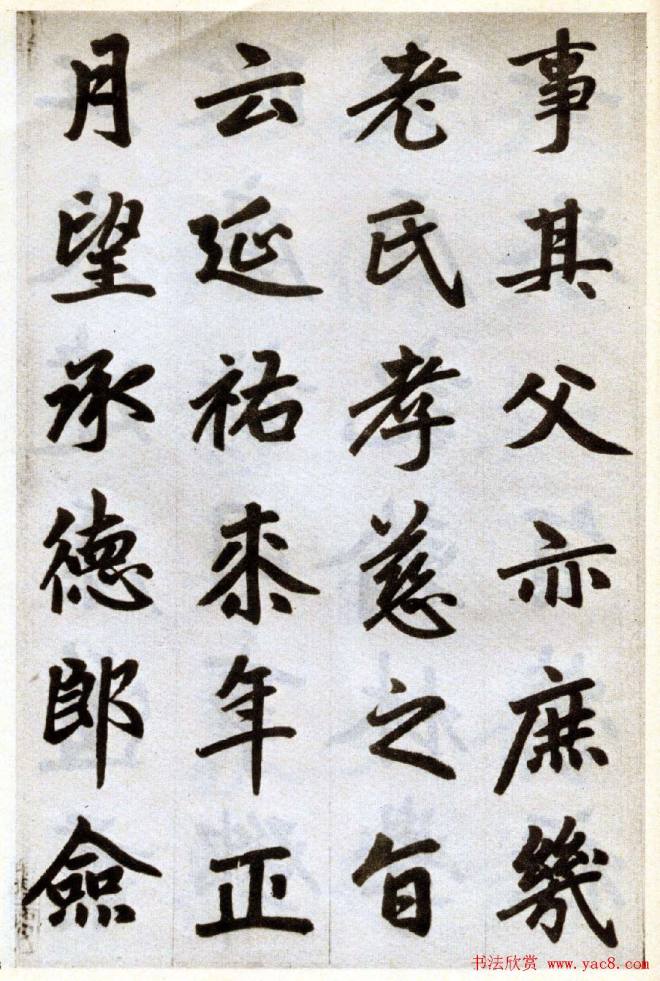 事其父亦庶幾
老氏孝慈之旨
云延祐来年正
月望承德郎僉
书法欣赏 www.yac8.com